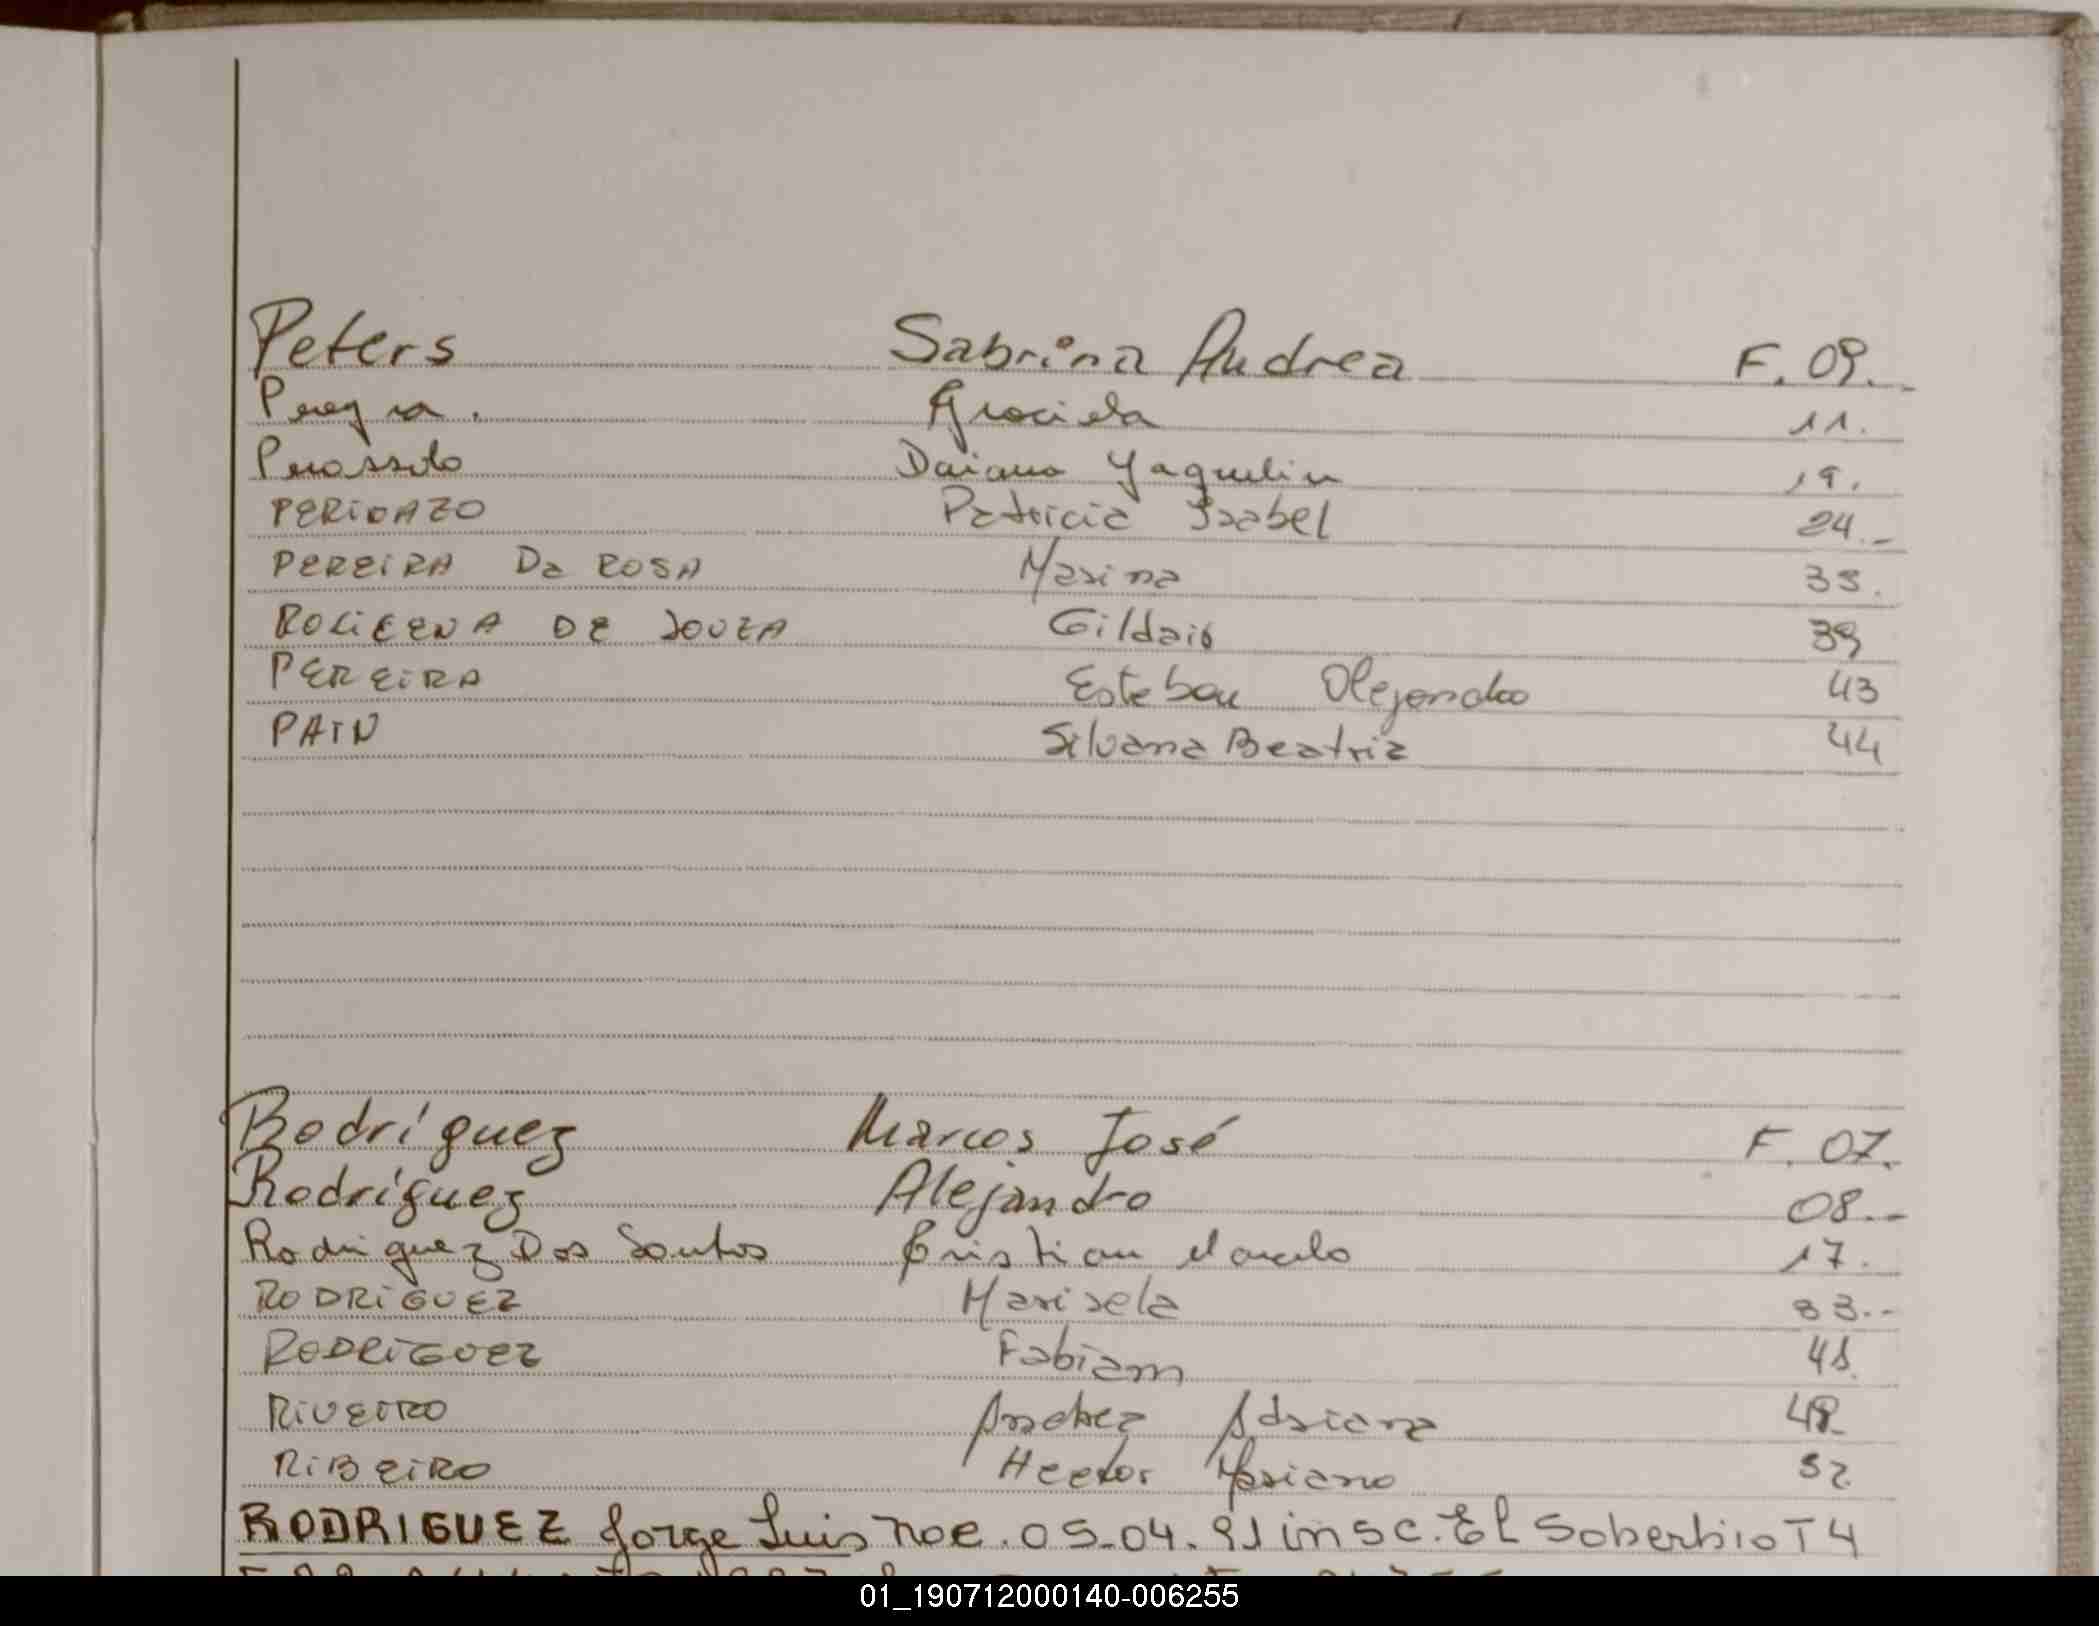 Peters Sabrina Andrea F. 09.
Graciela 11.
Daiana Yaquelin 19.
Patricia Ysabel 24.-
PEREIRA Da ROSA Marina
DE SOUZA 39
PEREIRA Esteban Alejandro 43
PAIN Silvana Beatriz 44
Rodríguez Marcos José F. 07.
Rodríguez Alejandro 08.-
Rodriguez Dos Santos Cristian Marcelo 17.
RODRIGUEZ Marisela 33.-
RODRIGUEZ Fabiam
RIVEIRO Andrea Adriana
RIBEIRO Hector Mariano 52
RODRIGUEZ Jorge Luis noc. 05-04.91 insc. El Soberbio T4
01_190712000140-006255